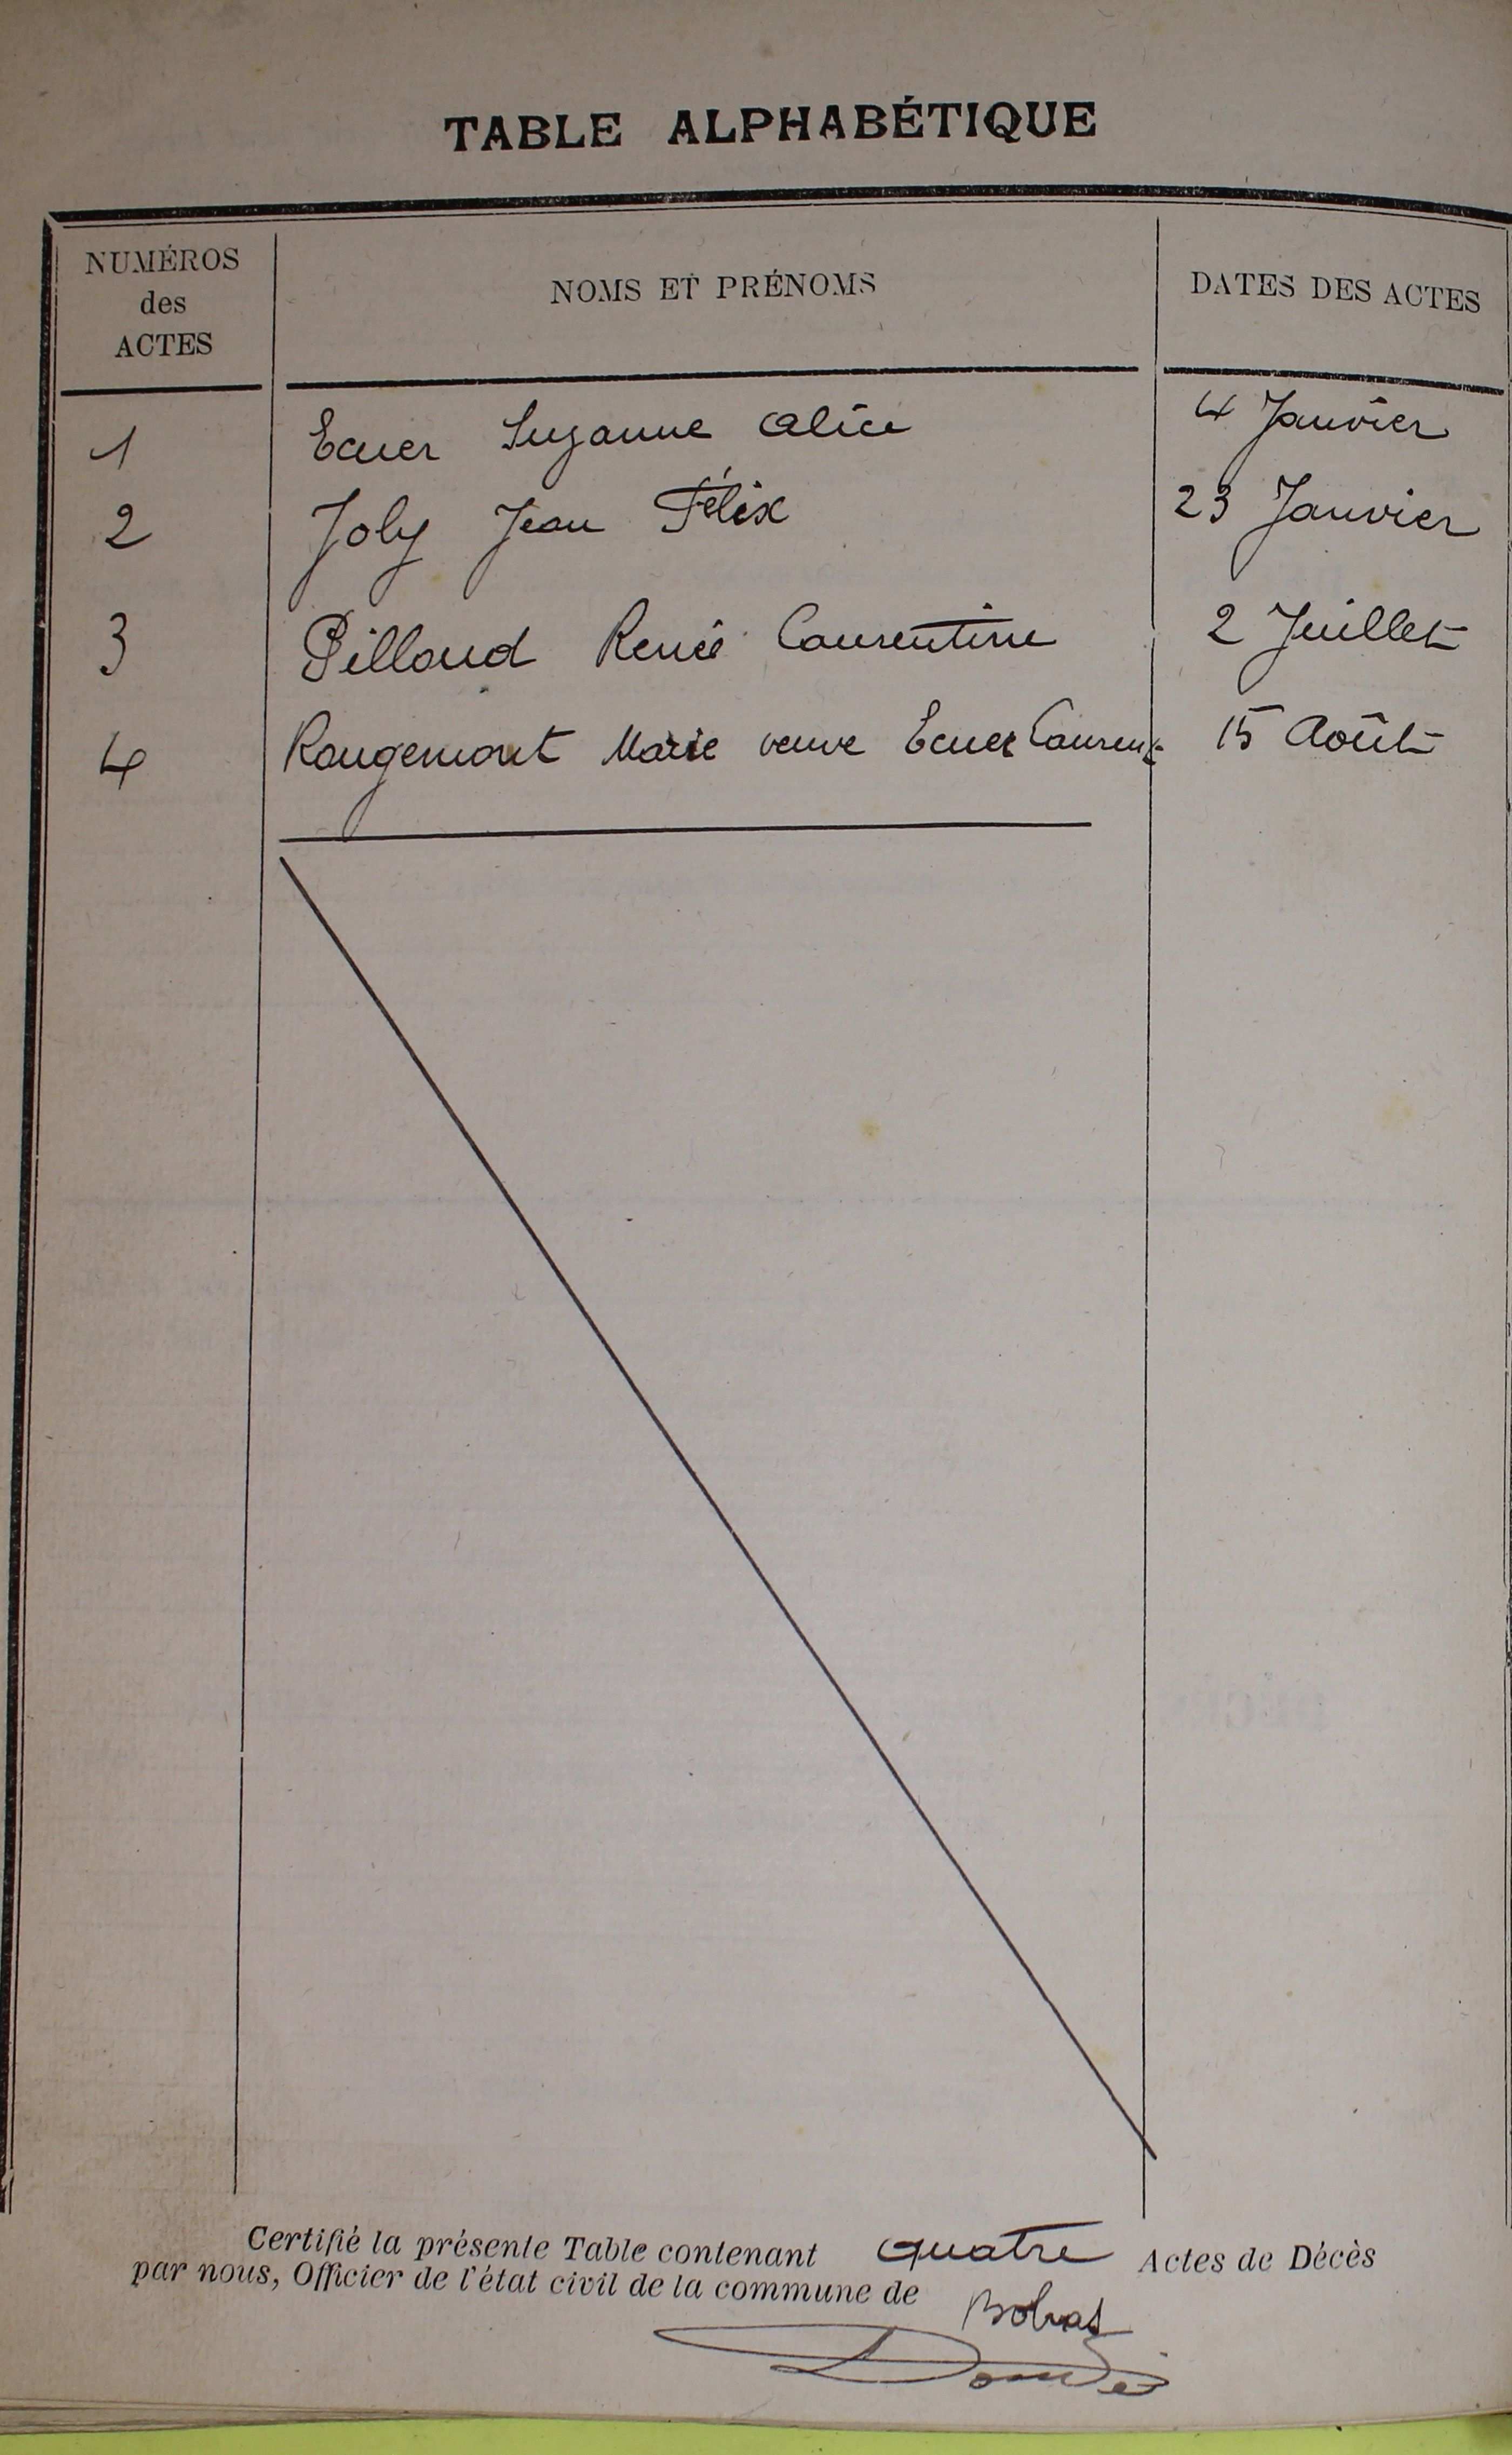 TABLE ALPHABÉTIQUE
NUMÉROS
des
ACTES
NOMS ET PRÉNOMS
DATES DES ACTES
1 Ecuer Suzanne Alice 4 Janvier
2 Joly Jean Félix 23 Janvier
3 Pilloud Renée Laurentine 2 Juillet
4 Rougemont Marie veuve Ecuer Laurent 15 Août
Certifié la présente Table contenant quatre Actes de Décès
par nous, Officier de l'état civil de la commune de